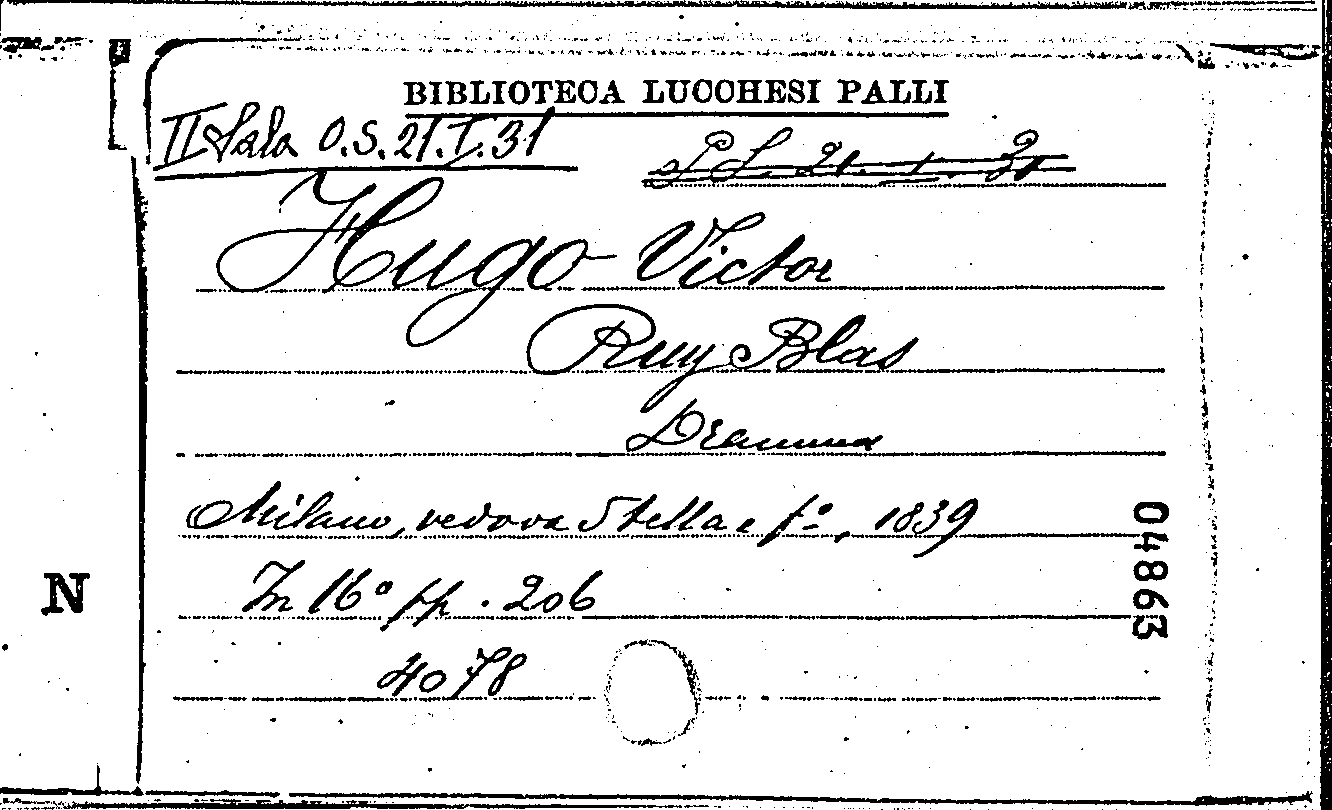 BIBLIOTECA LUCCHESI PALLI
II Sala O.S. 21. I. 31
21. 1. 31
Hugo Victor
Ruy Blas
Dramma
Milano, vedova Stella e fo, 1839
In 16º pp. 206
4078
04863
N